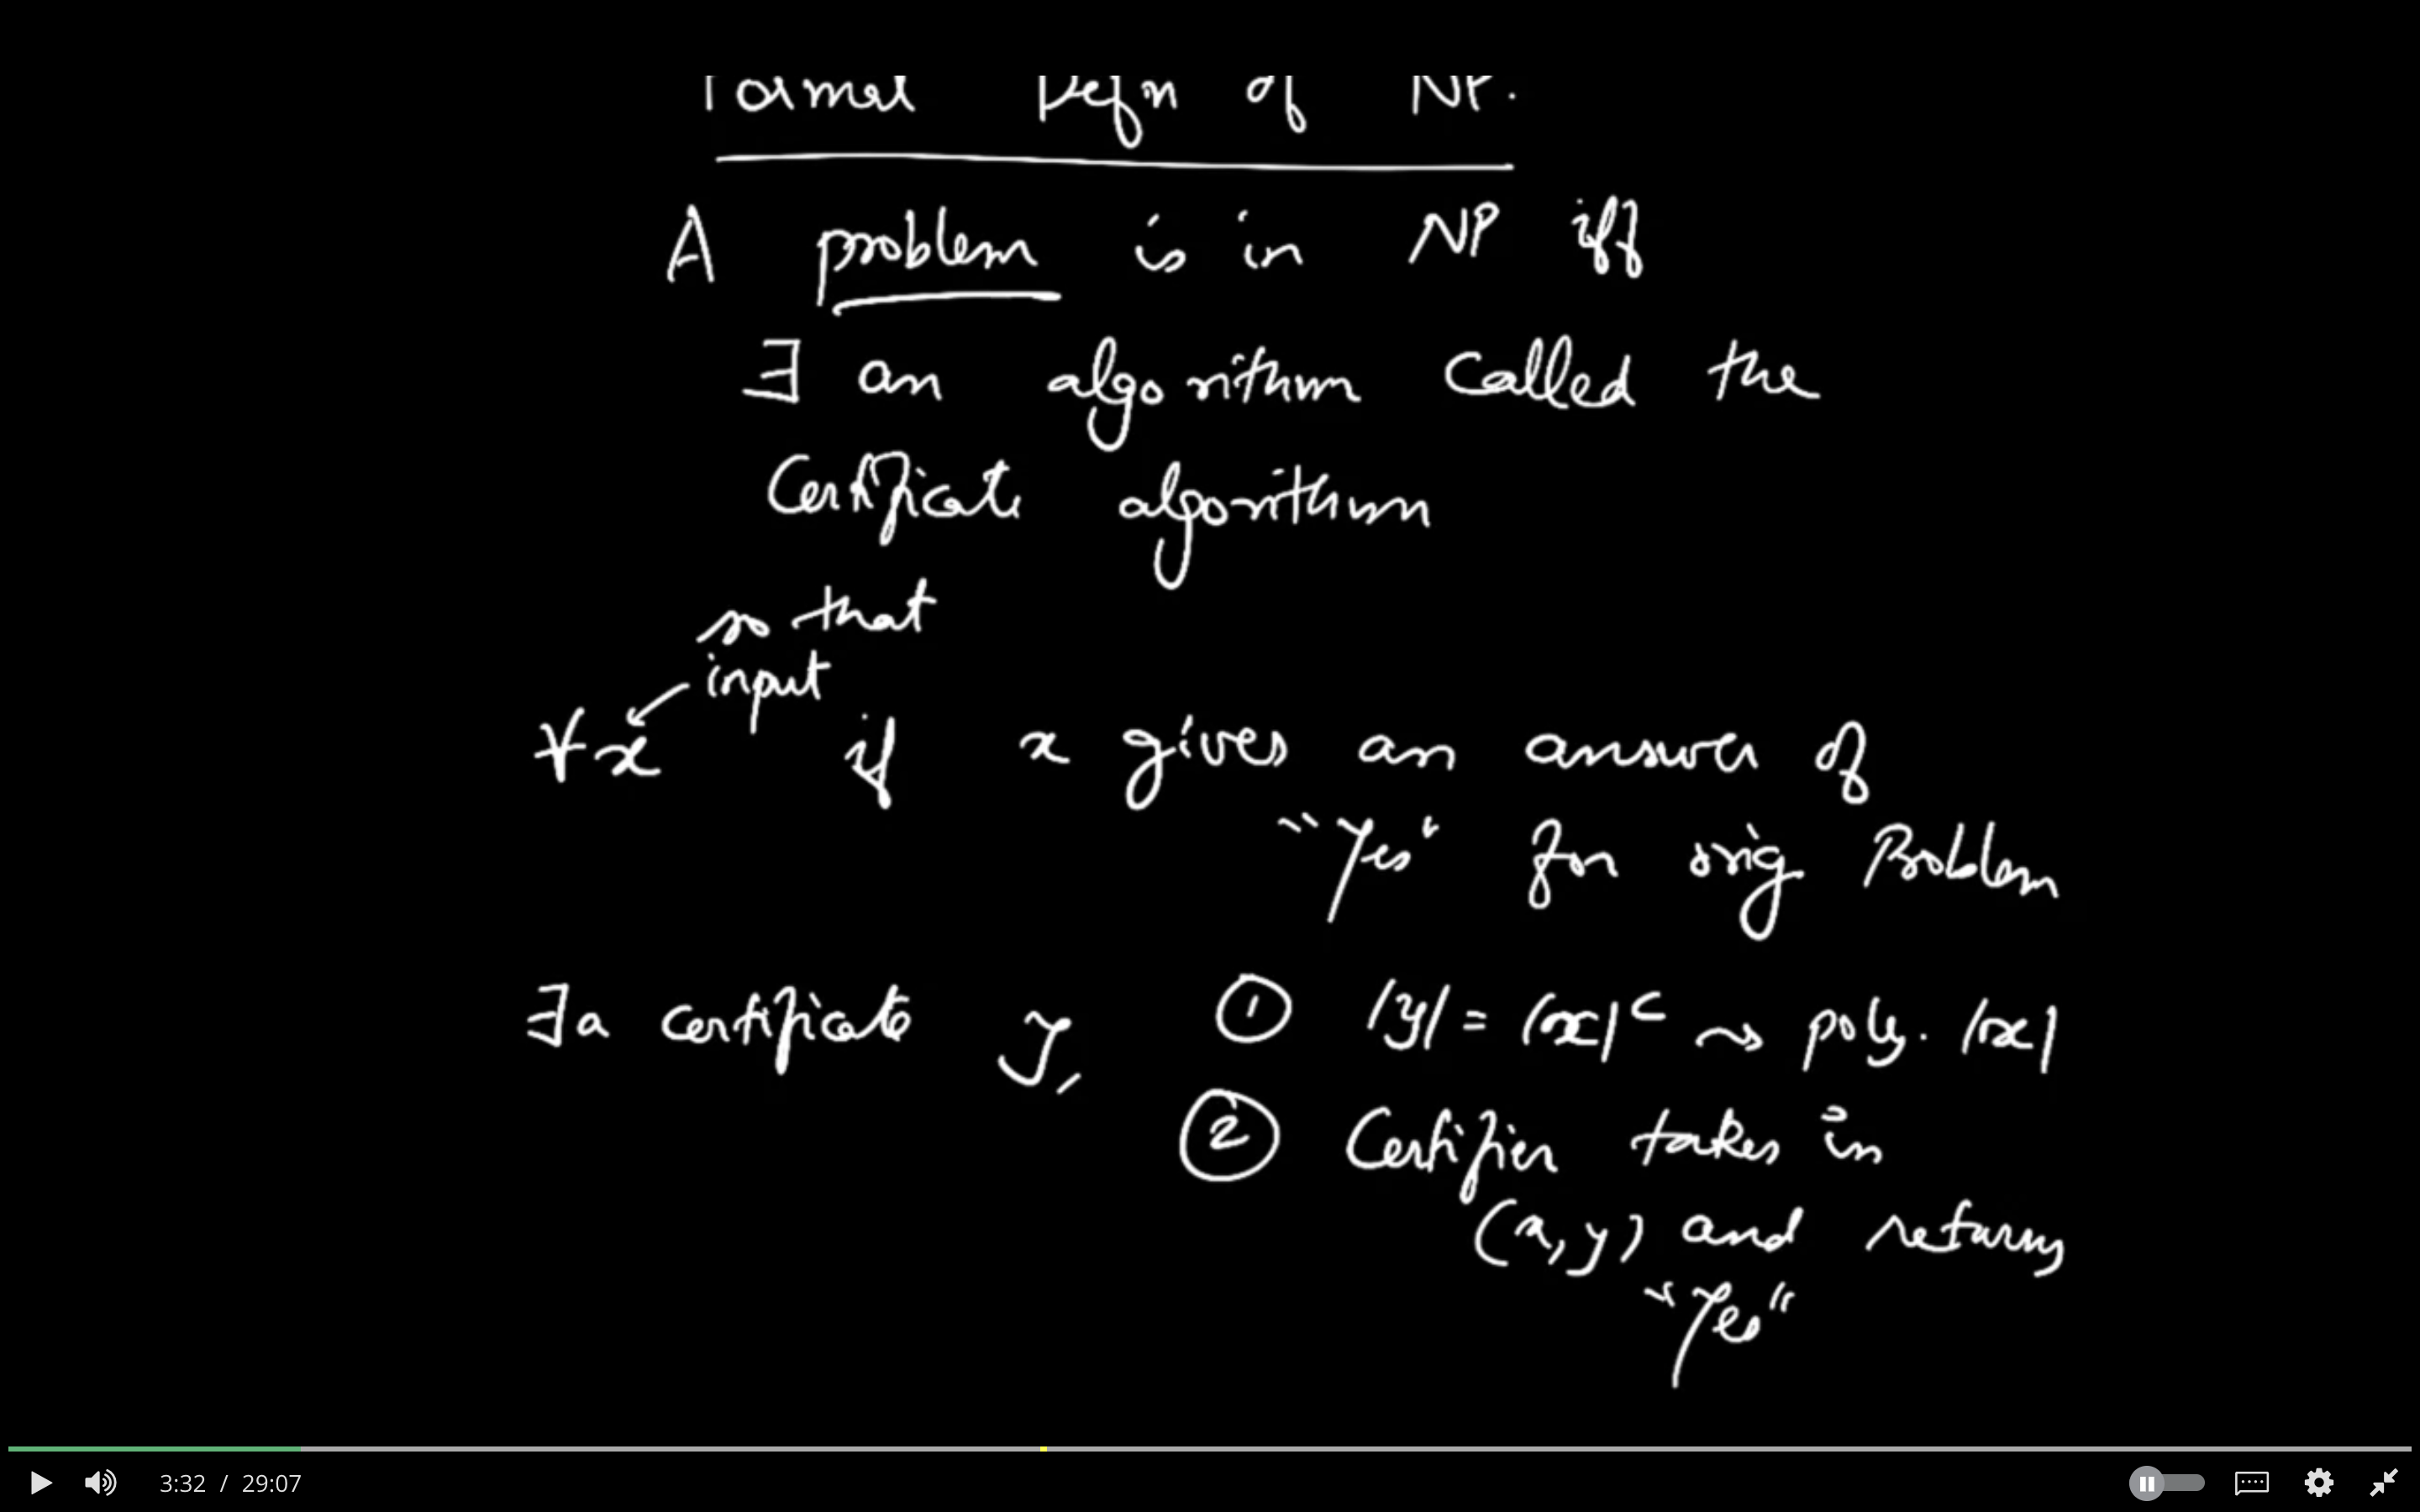 Formal Defn of NP.
A problem is in NP iff
∃ an algorithm called the
Certificate algorithm
so that
input
∀x if x gives an answer of
"Yes" for orig Problem
∃ a certificate y, ① |y| = |x|^c ⇝ poly. |x|
② Certifier takes in
(x, y) and returns
"Yes"
3:32 / 29:07